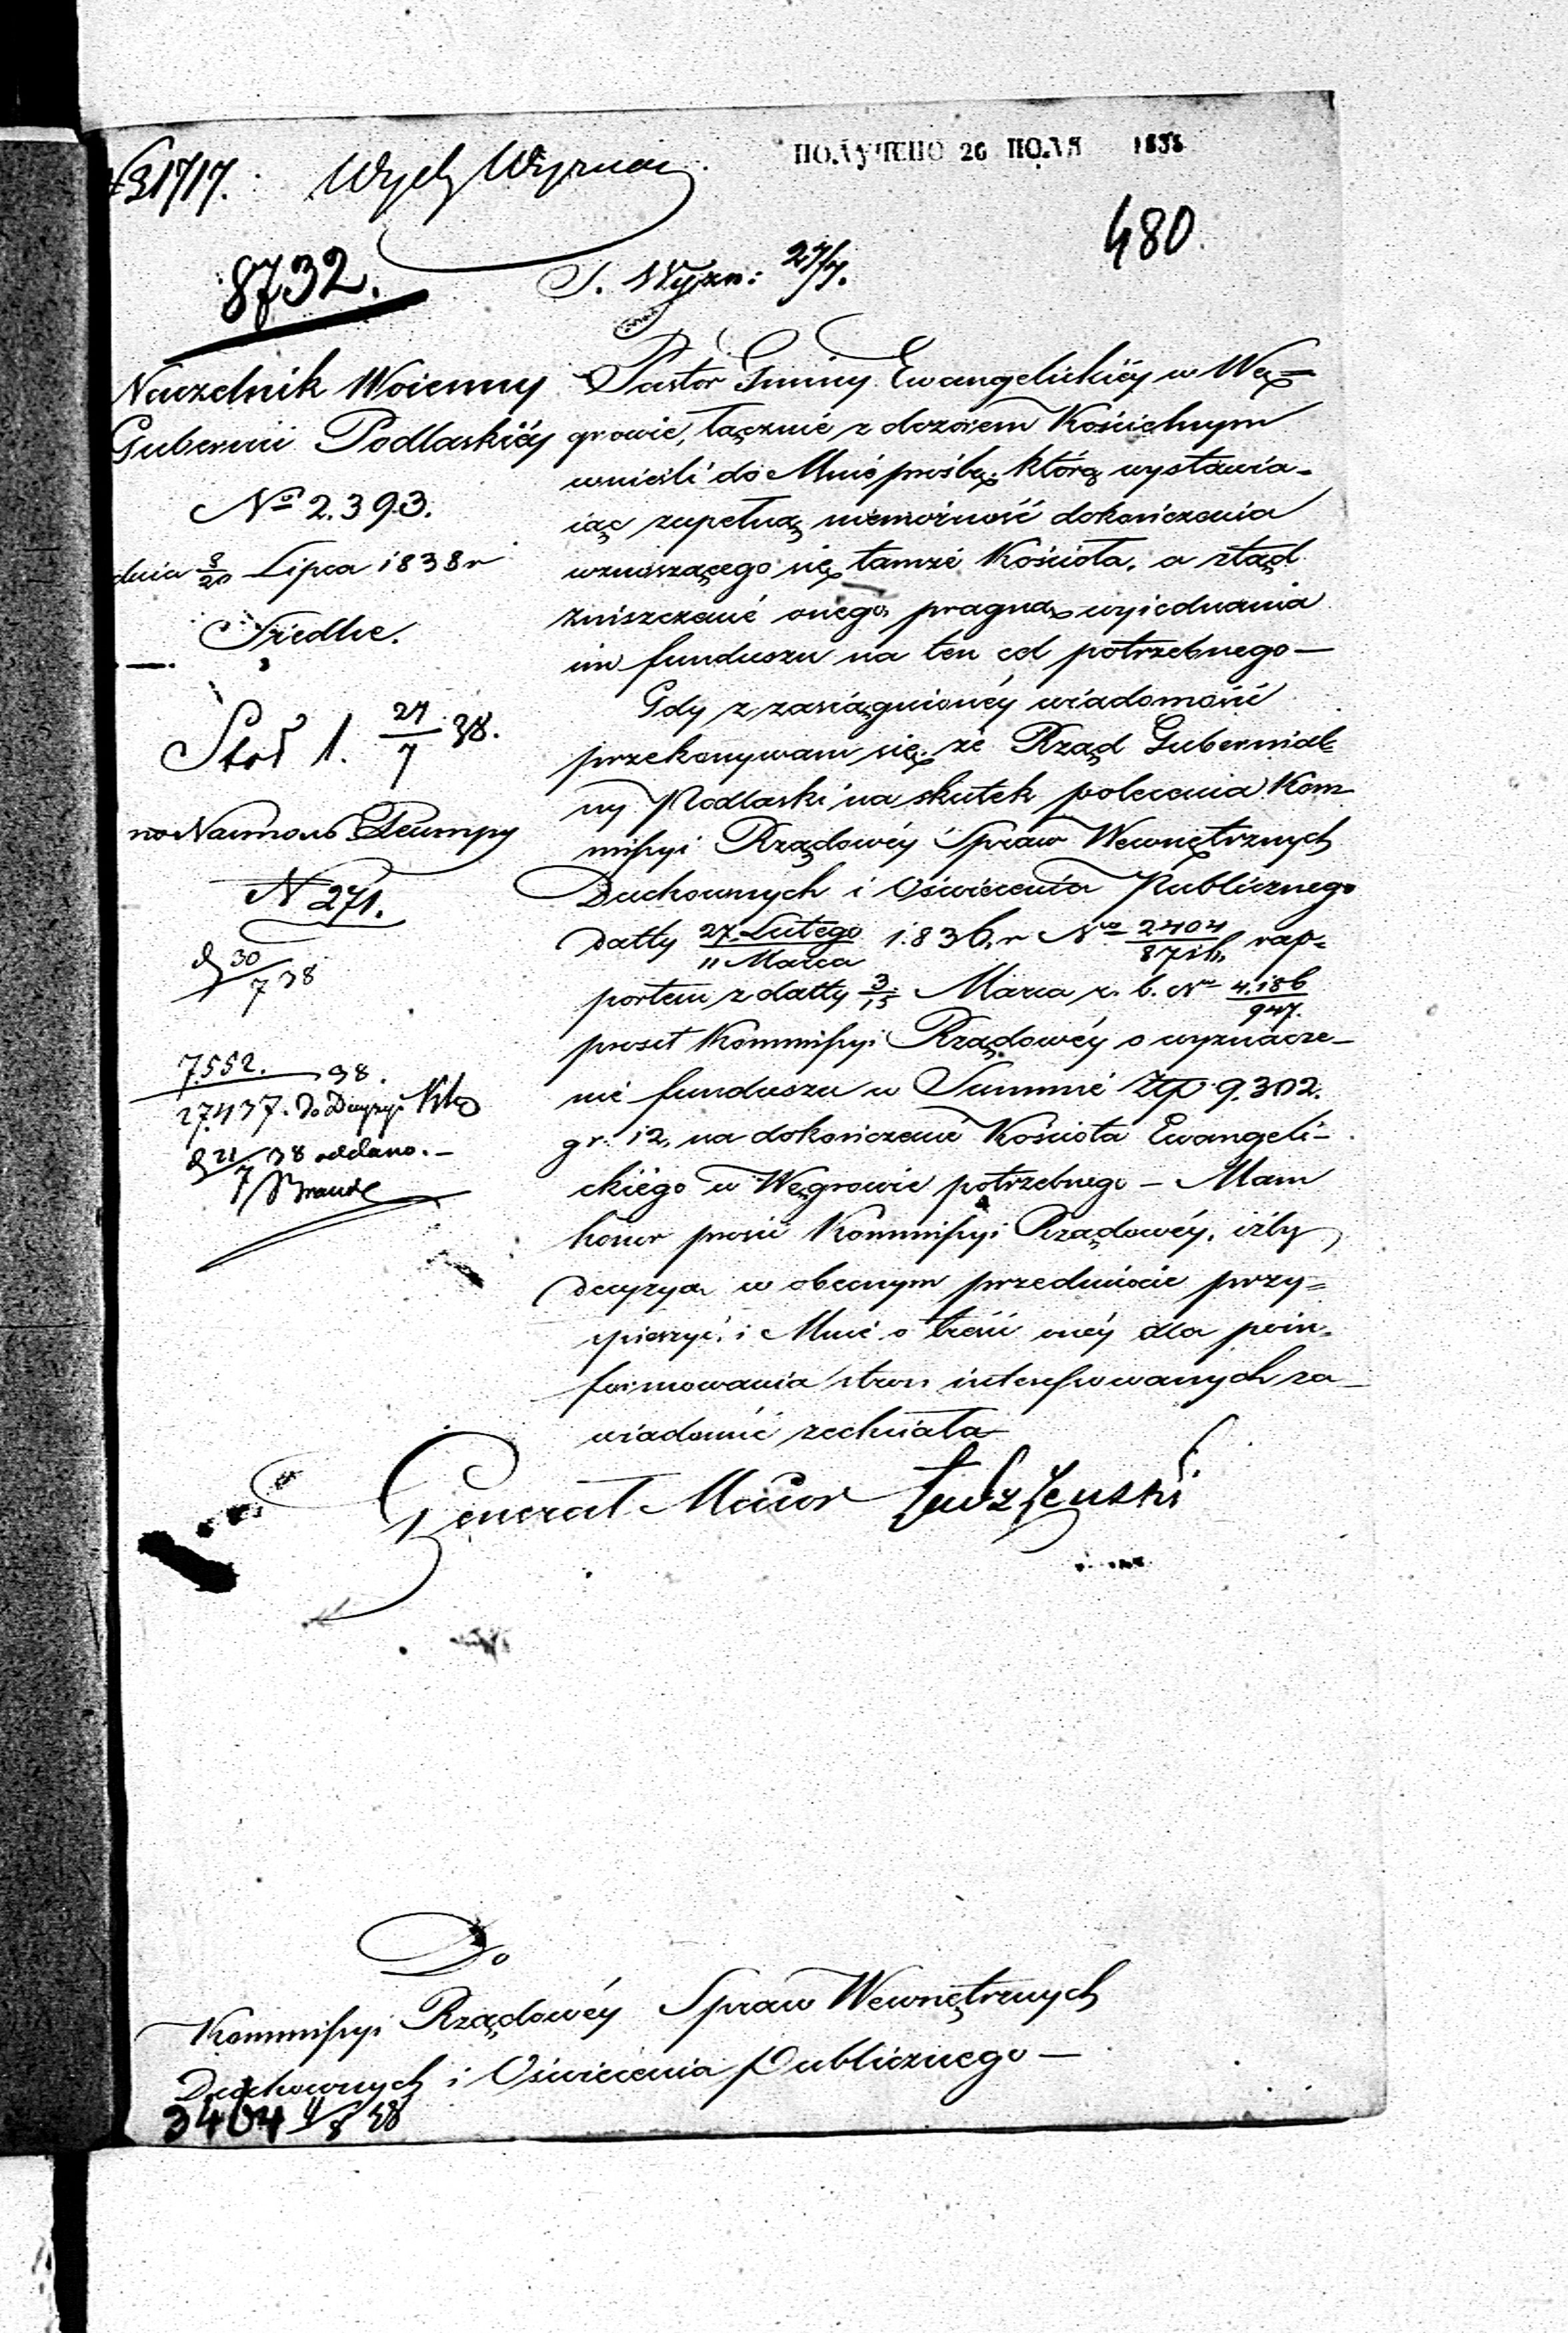 31717.
Wydz Wyznań
ПОЛУЧЕНО 26 ІЮЛЯ 1838
480.
8732.
S. Wyzn: 27/7.
Naczelnik Woienny
Gubernii Podlaskiéy
No 2.393.
dnia 8/20 Lipca 1838 r
Siedlce.
Stoł 1. 27/7 38.
N 271.
d 30/7 38
7552. 38.
27437. do Decyzyi
d 21/7 38 oddano.
Pastor Gminy Ewangelickiéy w Wę=
growie, łącznie z dozorem Kościelnym
wnieśli do Mnie prośbę, którą wystawia-
iąc zupełną niemożność dokończenia
wznoszącego się tamże Kościoła, a ztąd
zniszczenie onego, pragną wyiednania
im funduszu na ten cel potrzebnego —
Gdy z zasiągnionéy wiadomości
przekonywam się, że Rząd Gubernial=
ny Podlaski na skutek polecenia Kom
missyi Rządowéy Spraw Wewnętrznych
Duchownych i Oświecenia Publicznego
datty 27 Lutego/11 Marca 1.836. r No 2404/8716 rap=
portem z datty 3/15 Marca r. b. No 4.186/947.
prosił Kommissyi Rządowéy o wyznacze-
nie funduszu w Summie Złp 9.302.
gr. 12, na dokończenie Kościoła Ewangeli-
ckiego w Węgrowie potrzebnego — Mam
honor prosić Kommissyi Rządowéy, iżby
decyzyą w obecnym przedmiocie przy=
spieszyć, i Mnie o treści onéy dla poin-
formowania stron interessowanych za-
wiadomić zechciała
Generał Maior
Do
Kommissyi Rządowéy Spraw Wewnętrznych
Duchownych i Oświecenia Publicznego —
3404 4/8 38